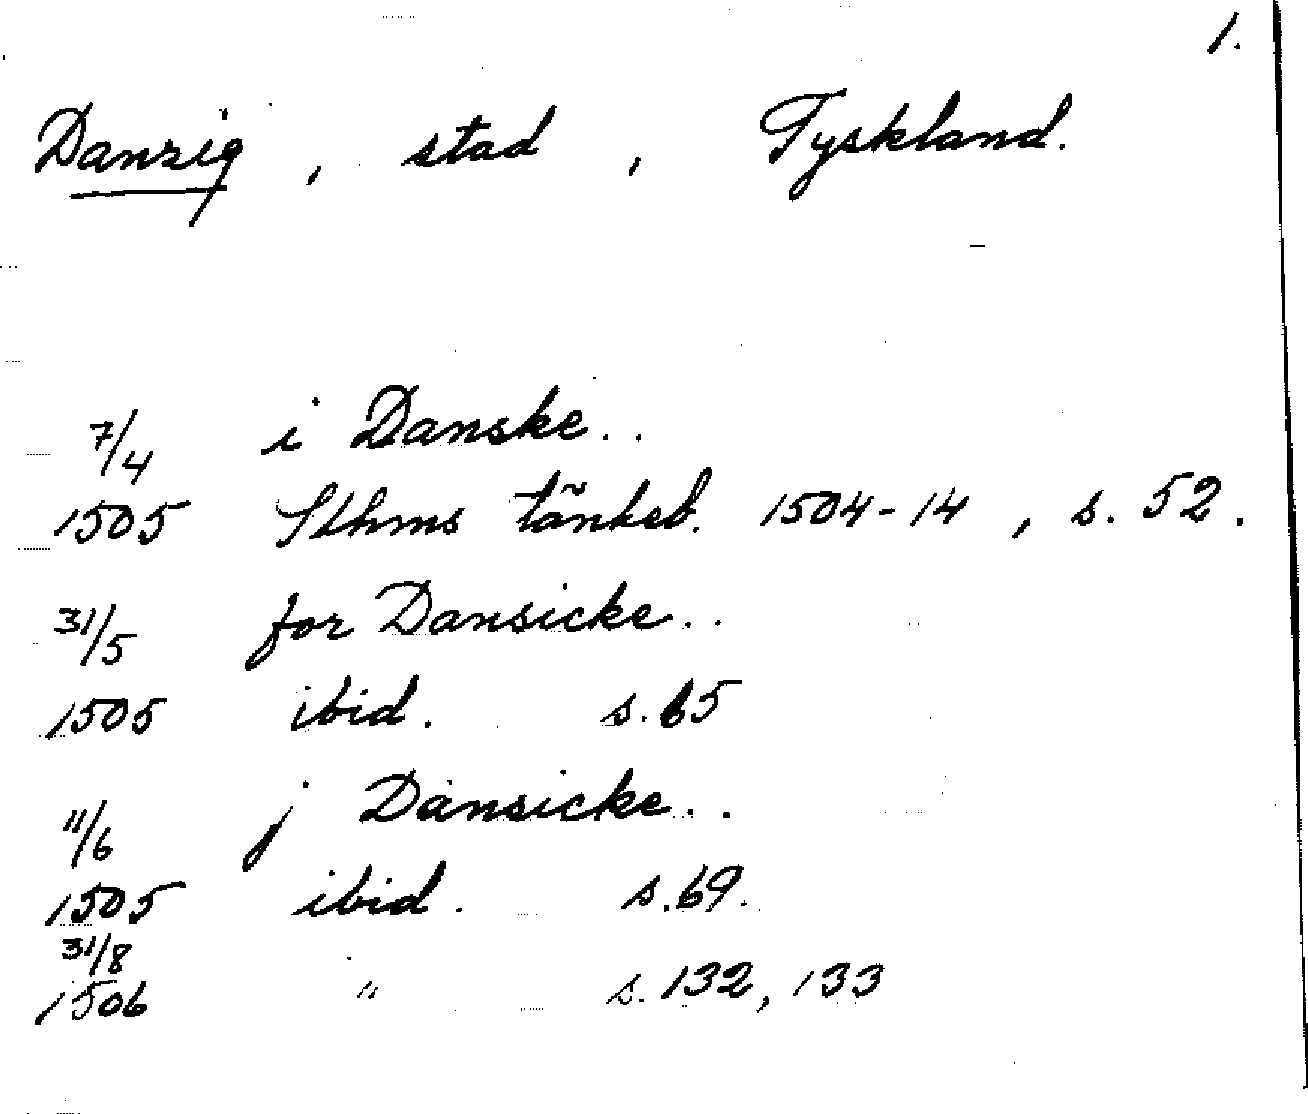 1.
Danzig, stad, Tyskland.
7/4 i Danske..
1505 Sthms tänkeb. 1504-14, s. 52.
31/5 for Dansicke..
1505 ibid. s. 65
11/6 j Dansicke..
1505 ibid. s. 69.
31/8
1506 " s. 132, 133